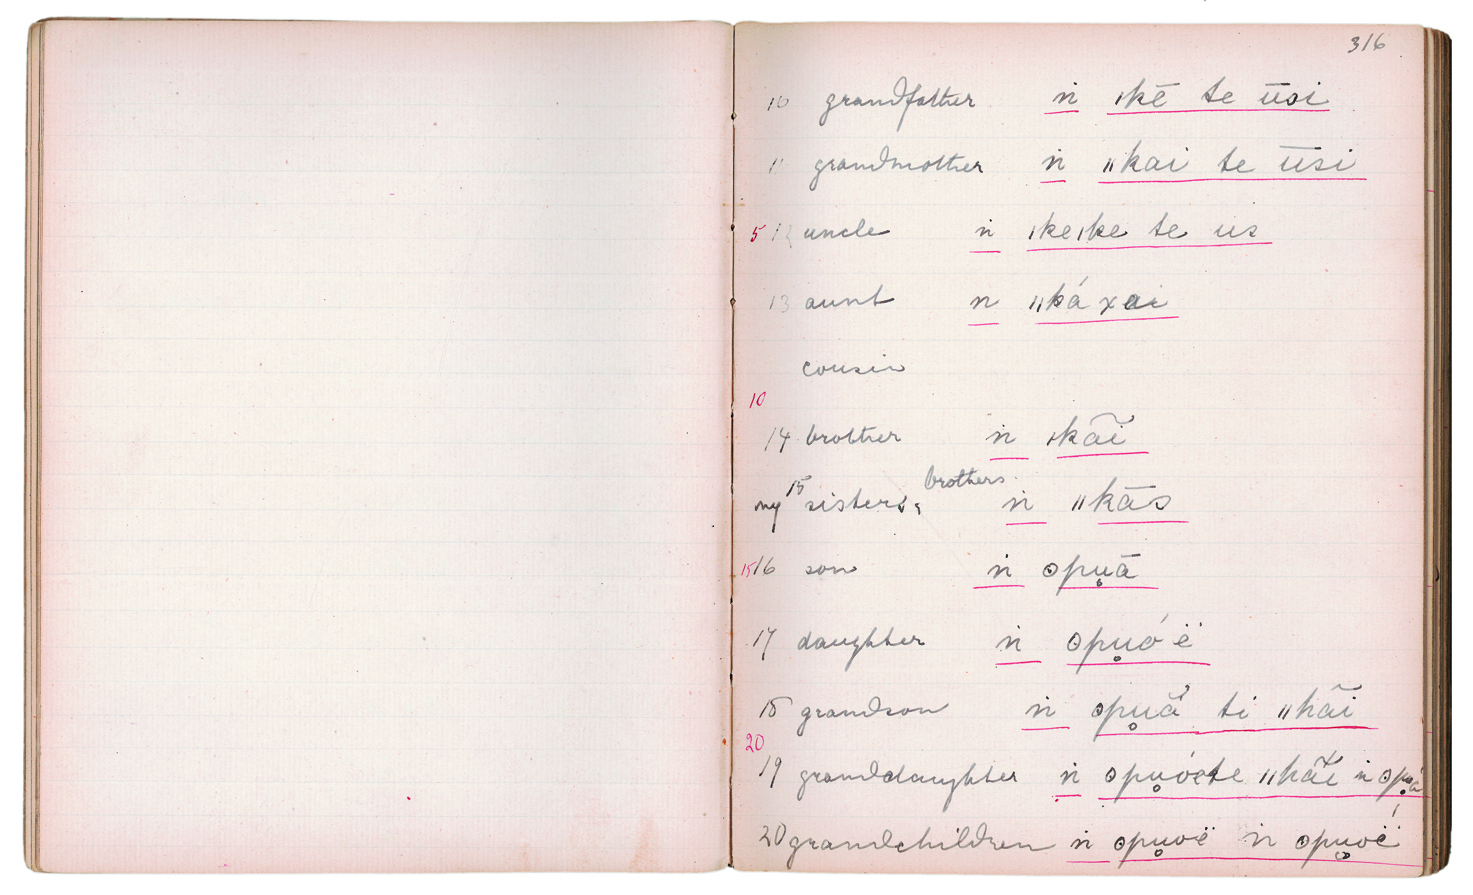 316
10 grandfather ṅ ǀkē te ūsi
11 grandmother ṅ ǁkai te ūsi
5 12 uncle ṅ ǀkeǀke te us
13 aunt n ǁká xai
cousin
10
14 brother ṅ ǀkãi
my 15 sisters, brothers ṅ ǁkās
15 16 son ṅ ʘpụā
17 daughter ṅ ʘpụó ë
18 grandson ṅ ʘpụa ti ǁkãi
20
19 granddaughter ṅ ʘpụóete ǁkãi n ʘpụá
20 grandchildren ṅ ʘpụoë ṅ ʘpụoë